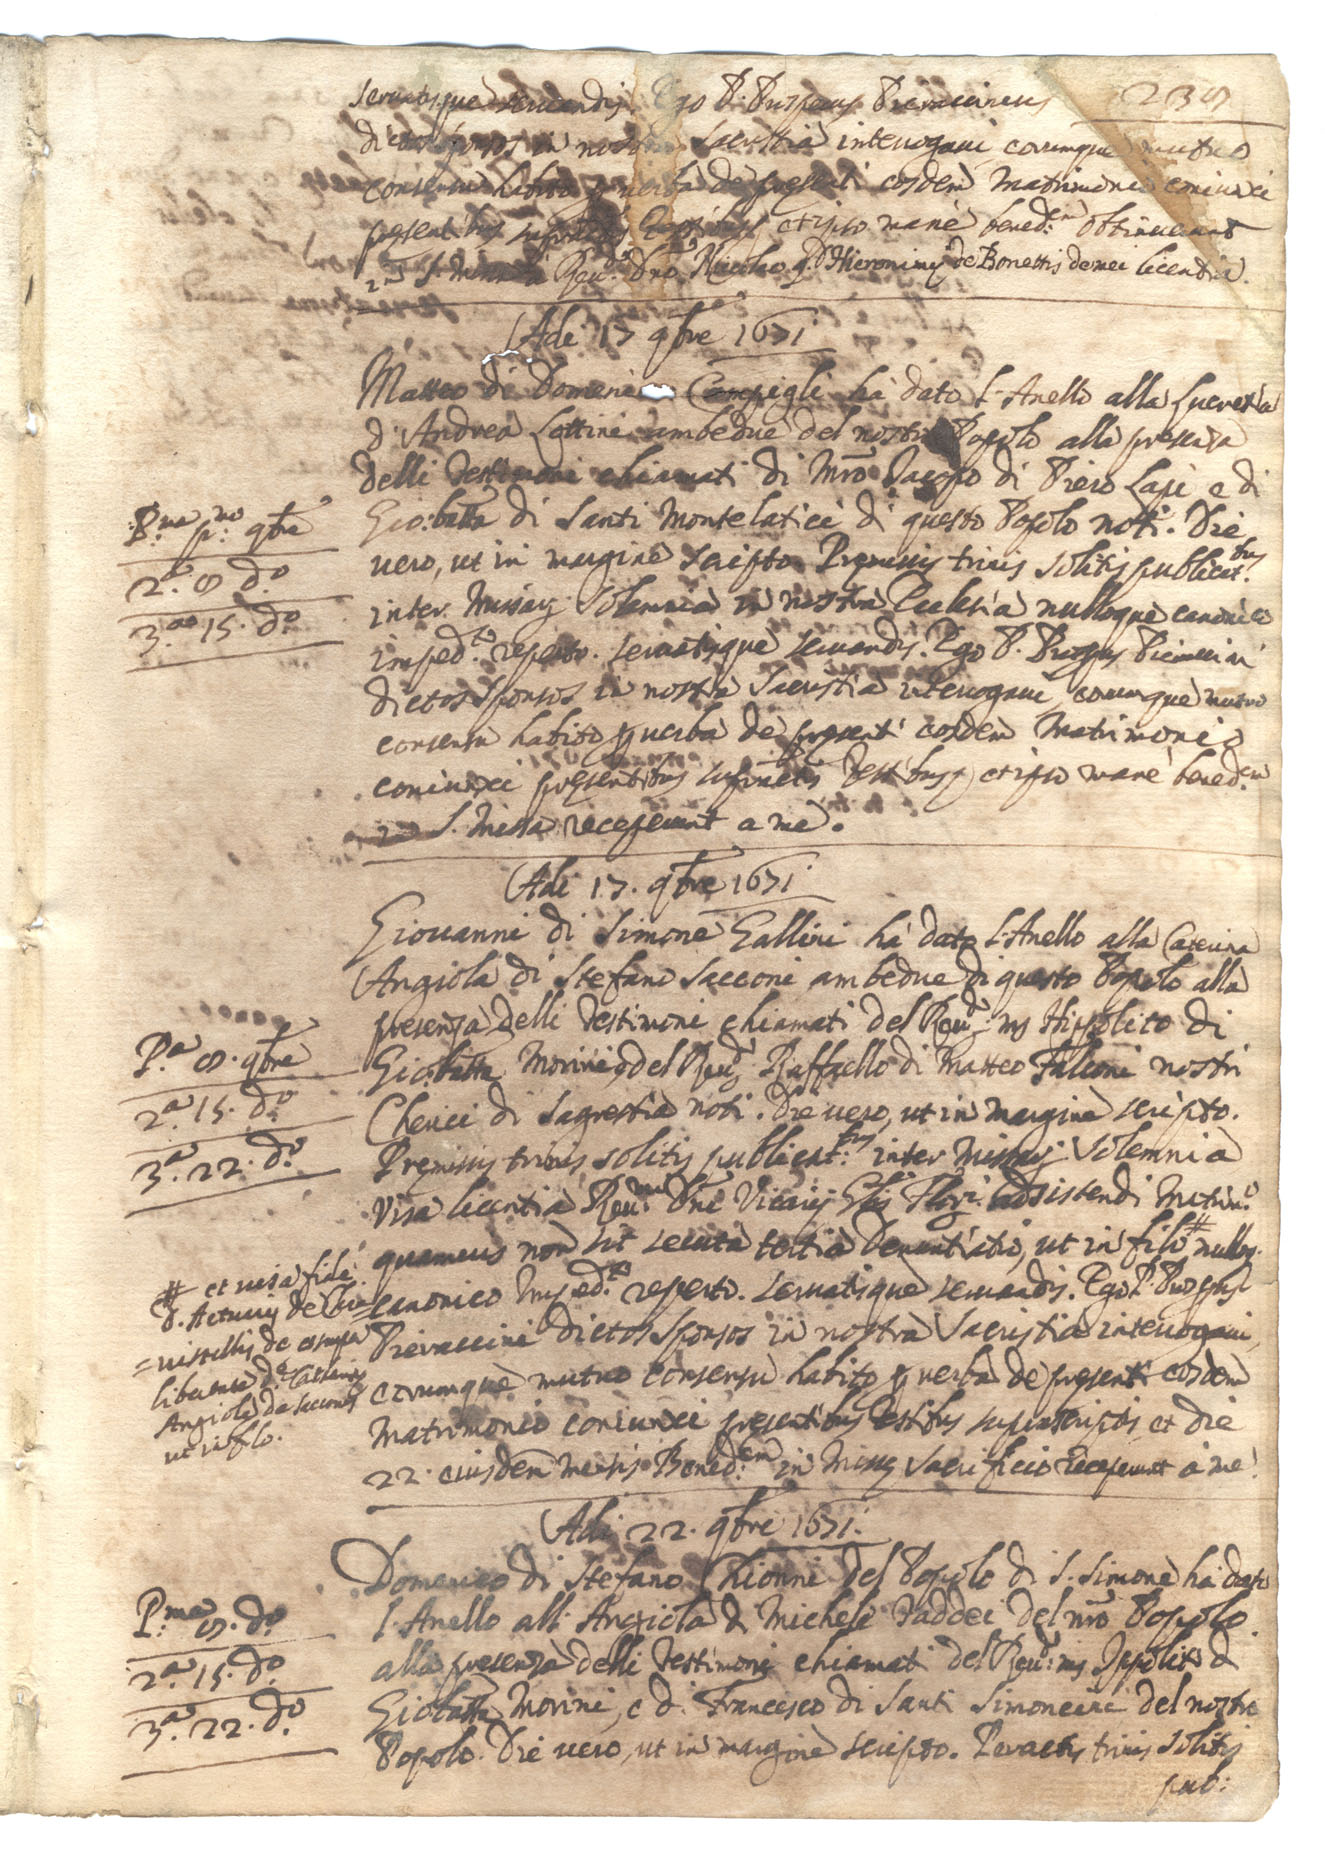 239
servatisque servandis Ego P. Prosperus Pieraccinius
dictos sponsos in nostra Sacristia interrogavi, eorumque mutuo
consensu habito p verba de presenti eosdem Matrimonio coniunxi
presentibus Testibus, et ipso mane bened:em obtinuerunt
in S. Missa a Reu:do Dno Nicolao q. D Hieronimi de Bonettis de mei licentia.
Adi 17 9bre 1671
Matteo di Domenico Campigli ha dato l'Anello alla Lucretia
d'Andrea Lottini ambedue del nostro Popolo alla presenza
delli Testimoni chiamati di Mro Jacopo di Piero Lapi e di
P:ma p:mo 9bre
Gio:batta di Santi Montelatici di questo Popolo noti. Die
vero, ut in margine scripto Premissis trinis solitis publicat:bus
2:a 8 do
inter Missarum Solemnia in nostra Ecclesia nulloque canonico
3:a 15. do
imped:to reperto. servatisque servandis. Ego P. Prosperus Pieraccini
dictos Sponsos in nostra Sacristia interrogavi, eorumque mutuo
consensu habito p verba de presenti eosdem Matrimonio
coniunxi presentibus Testibus, et ipso mane bened:em
in S. Missa receperunt a me.
Adi 17. 9bre 1671
Giovanni di Simone Gallini ha dato l'Anello alla Caterina
Angiola di Stefano Sacconi ambedue di questo Popolo alla
presenza delli Testimoni chiamati del Reu:do ms Hippolito di
P:a 8. 9bre
Gio:batta Morini, e del Reu:do Raffaello di Matteo Falconi nostri
2:a 15. do
Cherici di Sagrestia noti. Die vero, ut in margine scripto.
3:a 22. do
Premissis trinis solitis publicat:bus inter Missarum Solemnia
Visa licentia Reu:mi Dni Vicarij Glis Flor: assistendi Matrim:o
quamvis non sit secuta tertia Denuntiatio, ut in filo # nulloq
# et visa fide
canonico Imped:to reperto. servatisque servandis. Ego P. Prosperus
Pieraccini dictos Sponsos in nostra Sacristia interrogavi,
libertate d:e Catherine
eorumque mutuo consensu habito p verba de presenti eosdem
Angiole de Sacconis
Matrimonio coniunxi presentibus Testibus suprascriptis, et die
ut in filo.
22. eiusdem mensis Bened:em in Misse Sacrificio receperunt a me.
Adi 22. 9bre 1671.
Domenico di Stefano Chionni del Popolo di S. Simone ha dato
P:ma 8. do
l'Anello all'Angiola di Michele Taddei del nro Popolo
2:a 15. do
alla presenza delli Testimoni chiamati del Reu:do ms Ippolito di
3:a 22. do
Gio:batta Morini, e di Francesco di Santi Simoncini del nostro
Popolo. Die vero, ut in margine scripto. Peractis trinis solitis
pub: